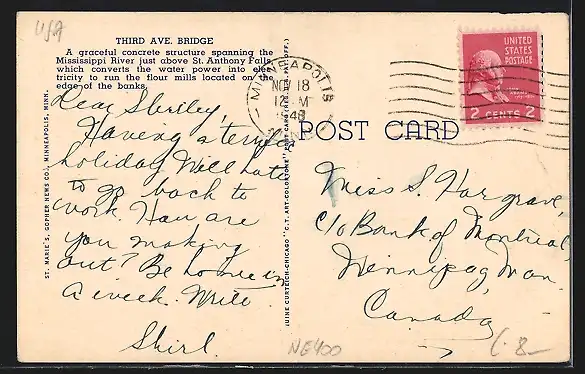 USA
THIRD AVE. BRIDGE
A graceful concrete structure spanning the
Mississippi River just above St. Anthony Falls,
which converts the water power into elec-
tricity to run the flour mills located on the
edge of the banks.
Dear Shirley,
Having a terrific
holiday. Will hate
to go back to
work. How are
you making
out? Be home in
a week. Write
Shirl.
ST. MARIE'S, GOPHER NEWS CO., MINNEAPOLIS, MINN.
JUNE CURTEICH-CHICAGO "C.T. ART-COLORTONE" POST CARD (REG. U.S. PAT. OFF.)
MINNEAPOLIS
NOV 18
12 M
1948
UNITED
STATES
POSTAGE
2 CENTS 2
POST CARD
Miss S. Hargrave,
c/o Bank of Montreal,
Winnipeg, Man.
Canada
NE400
6.8-